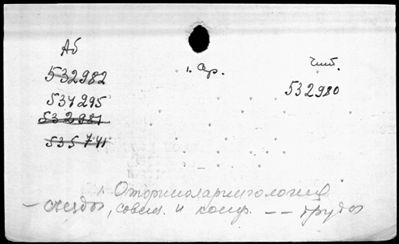 Аб
532982
537295
532981
535741
1. Ср.
Чит.
532980
1. Оториноларингология
— съезды, совещ. и конф. — — труды